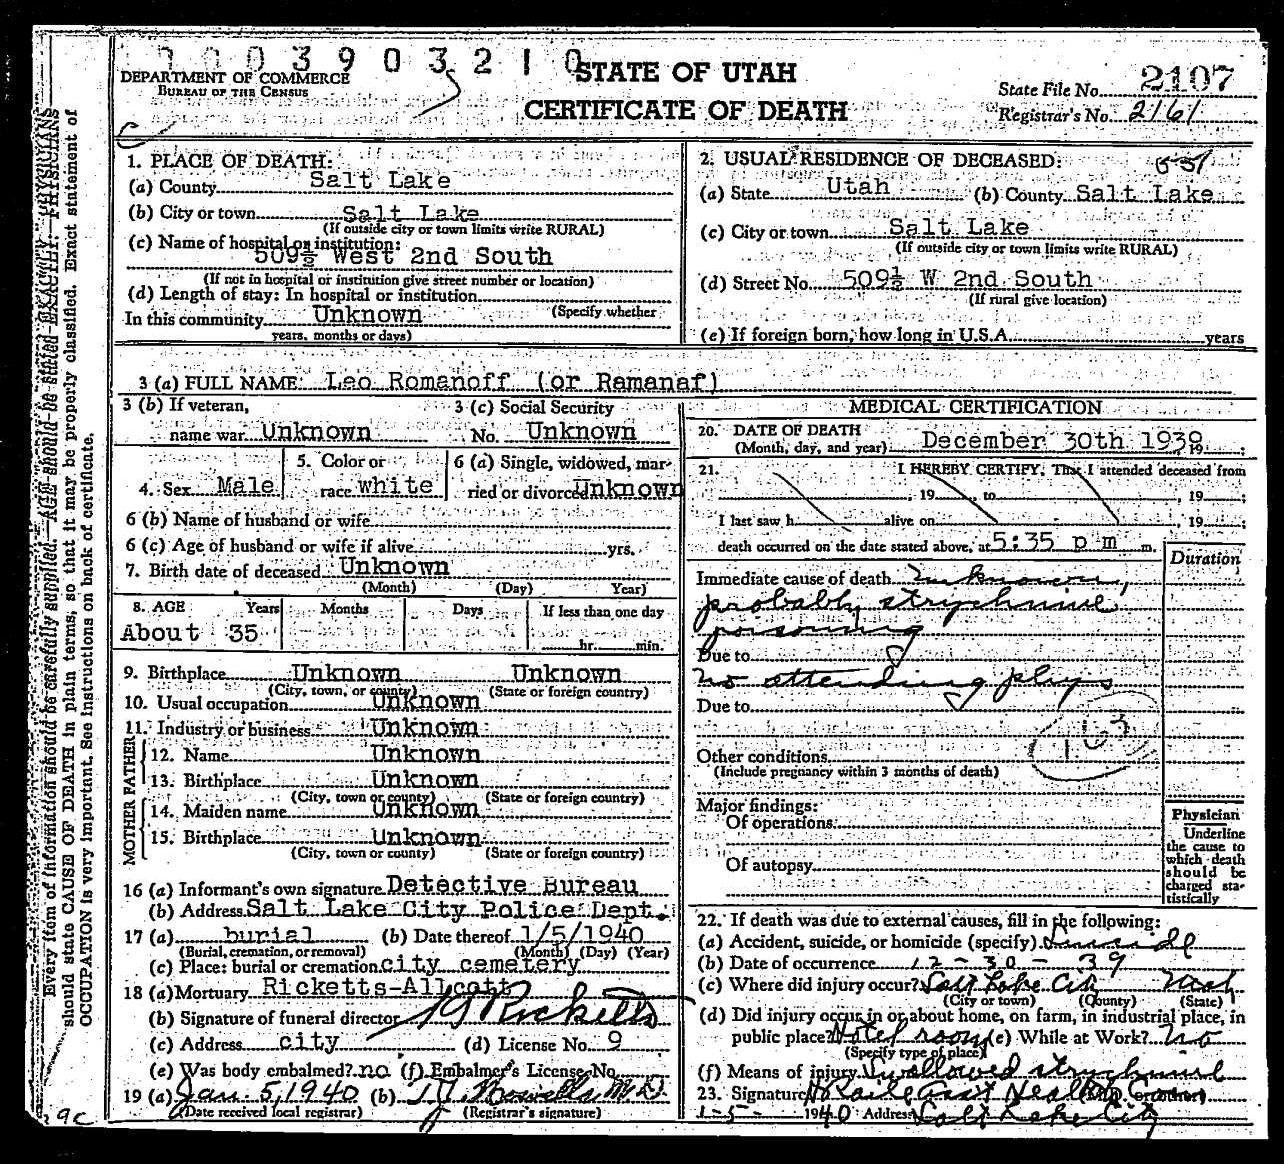 7 0 0 3 9 0 3 2 1 0
DEPARTMENT OF COMMERCE
BUREAU OF THE CENSUS
STATE OF UTAH
CERTIFICATE OF DEATH
State File No. 2107
Registrar's No. 2161
Every item of information should be carefully supplied. AGE should be stated EXACTLY. PHYSICIANS
should state CAUSE OF DEATH in plain terms, so that it may be properly classified. Exact statement of
OCCUPATION is very important. See instructions on back of certificate.
1. PLACE OF DEATH:
(a) County Salt Lake
(b) City or town Salt Lake
(If outside city or town limits write RURAL)
(c) Name of hospital or institution:
509½ West 2nd South
(If not in hospital or institution give street number or location)
(d) Length of stay: In hospital or institution
In this community Unknown (Specify whether
years, months or days)
2. USUAL RESIDENCE OF DECEASED:
(a) State Utah (b) County Salt Lake
(c) City or town Salt Lake
(If outside city or town limits write RURAL)
(d) Street No. 509½ W 2nd South
(If rural give location)
(e) If foreign born, how long in U.S.A. years
3 (a) FULL NAME: Leo Romanoff (or Ramanaf)
3 (b) If veteran, name war Unknown
3 (c) Social Security No. Unknown
4. Sex Male
5. Color or race white
6 (a) Single, widowed, married or divorced Unknown
6 (b) Name of husband or wife
6 (c) Age of husband or wife if alive yrs.
7. Birth date of deceased Unknown
(Month) (Day) Year)
8. AGE Years Months Days If less than one day
About 35 hr. min.
9. Birthplace Unknown Unknown
(City, town, or county) (State or foreign country)
10. Usual occupation Unknown
11. Industry or business Unknown
FATHER
12. Name Unknown
13. Birthplace Unknown
(City, town or county) (State or foreign country)
MOTHER
14. Maiden name Unknown
15. Birthplace Unknown
(City, town or county) (State or foreign country)
16 (a) Informant's own signature Detective Bureau
(b) Address Salt Lake City Police Dept.
17 (a) burial (b) Date thereof 1/5/1940
(Burial, cremation, or removal) (Month) (Day) (Year)
(c) Place: burial or cremation city cemetery
18 (a) Mortuary Ricketts-Allcott
(b) Signature of funeral director Ricketts
(c) Address city (d) License No. 9
(e) Was body embalmed? no (f) Embalmer's License No.
19 (a) Jan. 5, 1940 (b) M.D.
(Date received local registrar) (Registrar's signature)
9c
MEDICAL CERTIFICATION
20. DATE OF DEATH
(Month, day, and year) December 30th 1939 19 ;
21. I HEREBY CERTIFY, That I attended deceased from
, 19 , to , 19 ;
I last saw h alive on , 19 ;
death occurred on the date stated above, at 5:35 p m m.
Duration
Immediate cause of death Unknown,
probably strychnine
poisoning
Due to
No attending phys
Due to
163
Other conditions
(Include pregnancy within 3 months of death)
Major findings:
Of operations
Of autopsy
Physician
Underline
the cause to
which death
should be
charged sta-
tistically
22. If death was due to external causes, fill in the following:
(a) Accident, suicide, or homicide (specify) Suicide
(b) Date of occurrence 12-30-39
(c) Where did injury occur? Salt Lake City Utah
(City or town) (County) (State)
(d) Did injury occur in or about home, on farm, in industrial place, in
public place? Hotel room (e) While at Work? no
(Specify type of place)
(f) Means of injury Swallowed strychnine
23. Signature
1-5- 1940 Address Salt Lake City